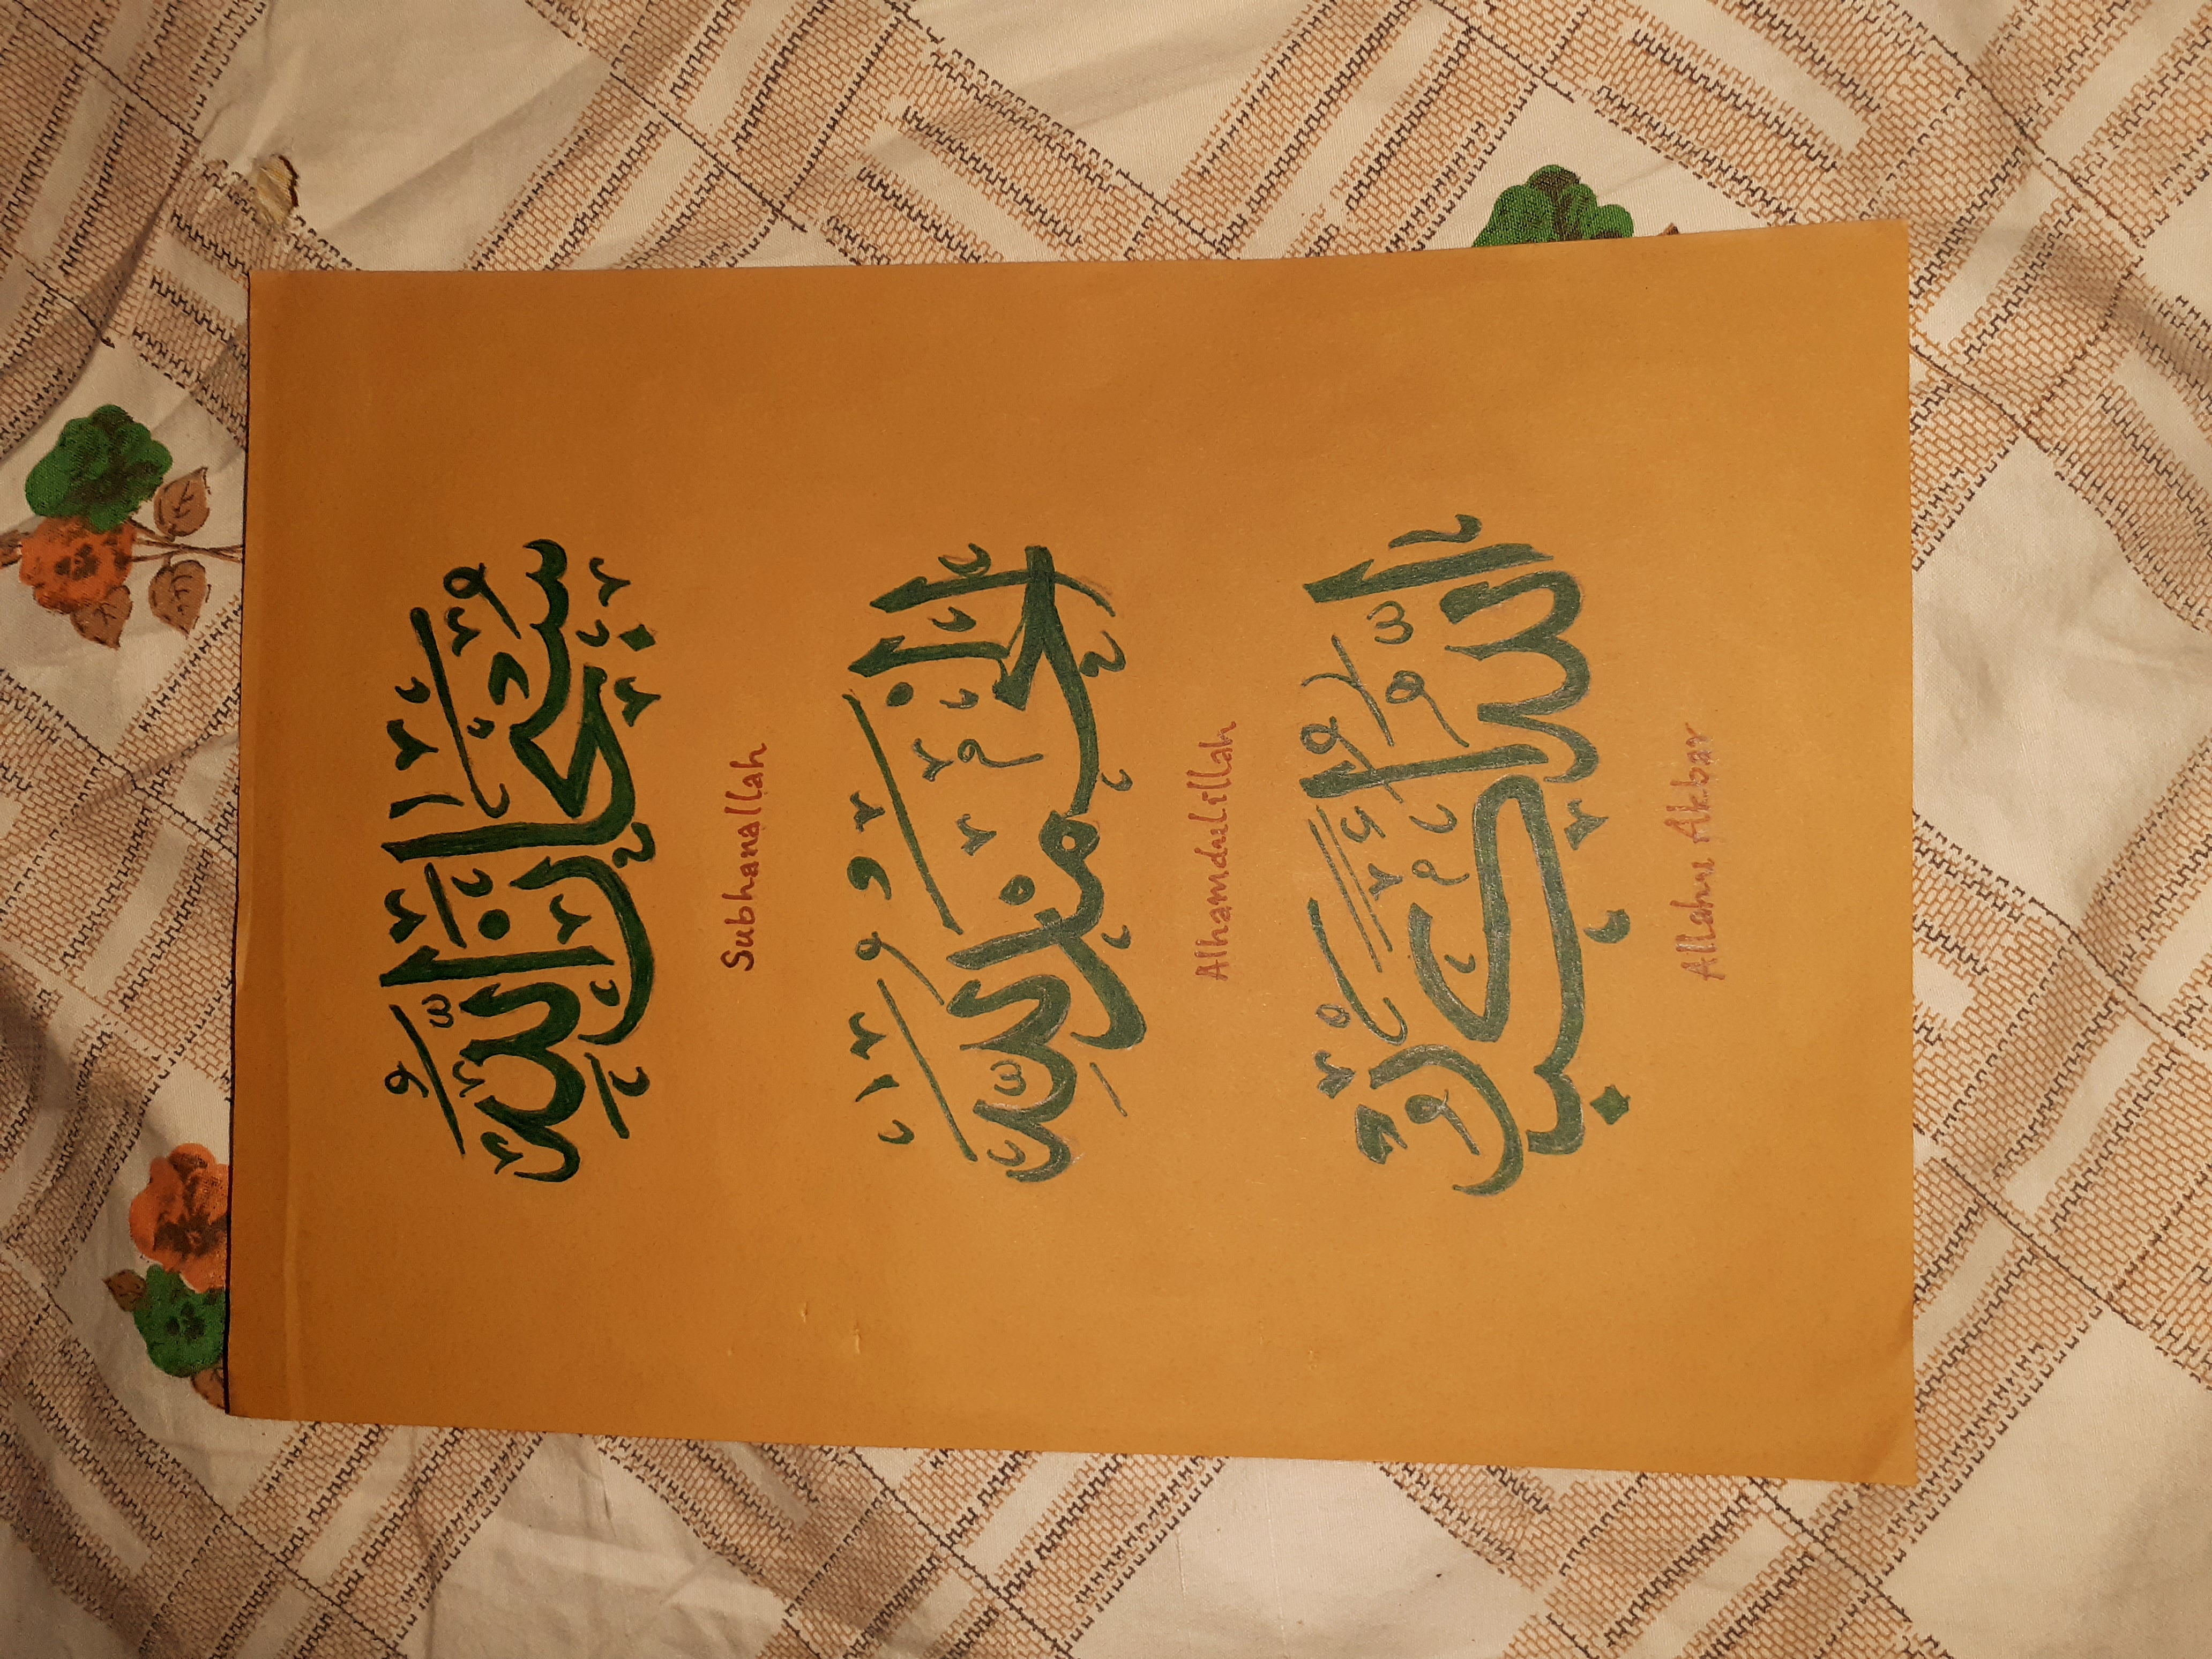 سُبْحَانَ اللّٰهِ
Subhanallah
الْحَمْدُ لِلّٰهِ
Alhamdulillah
اللّٰهُ أَكْبَرُ
Allahu Akbar